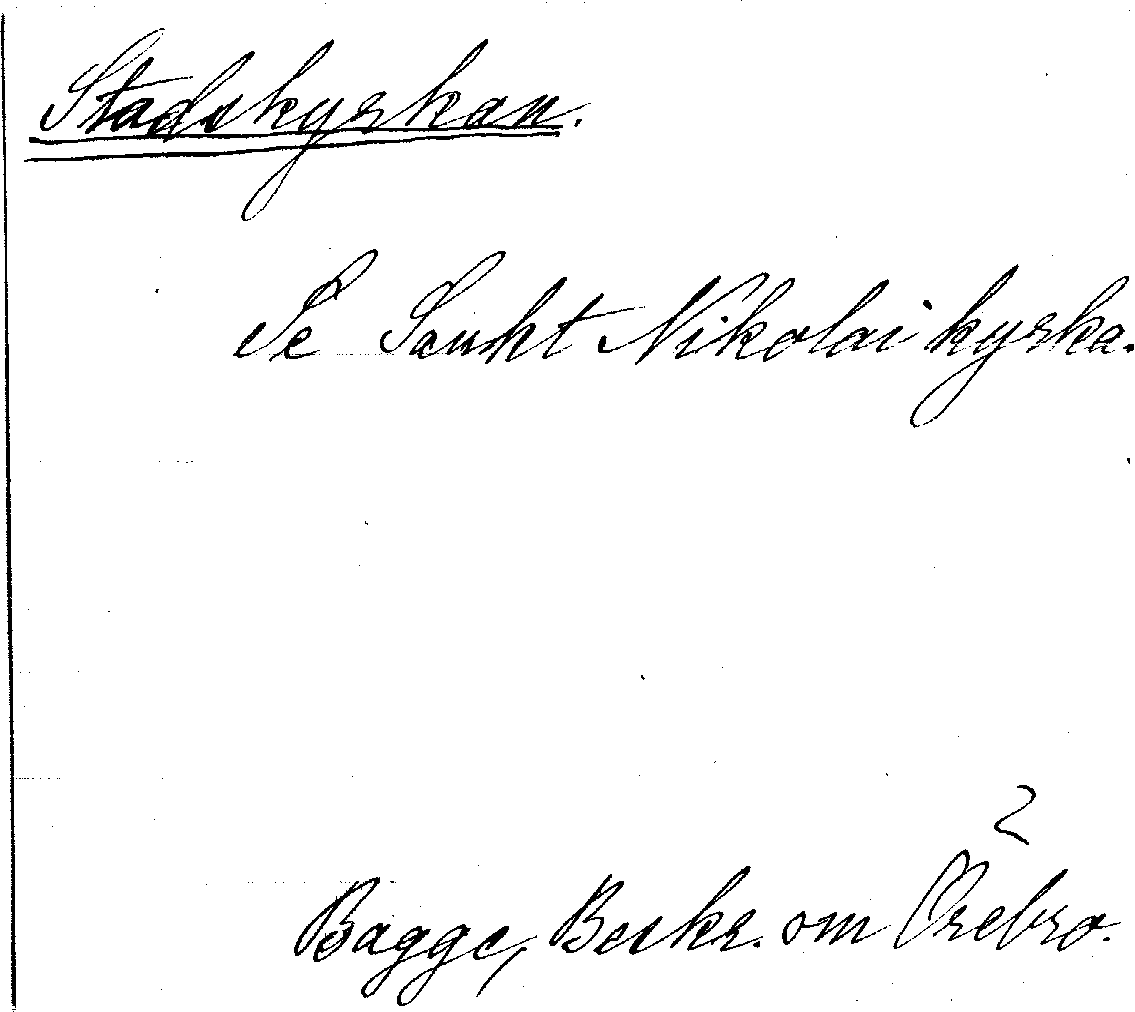 Stadskyrkan.
Se Sankt Nikolai kyrka.
2
Bagge, Beskr. om Örebro.